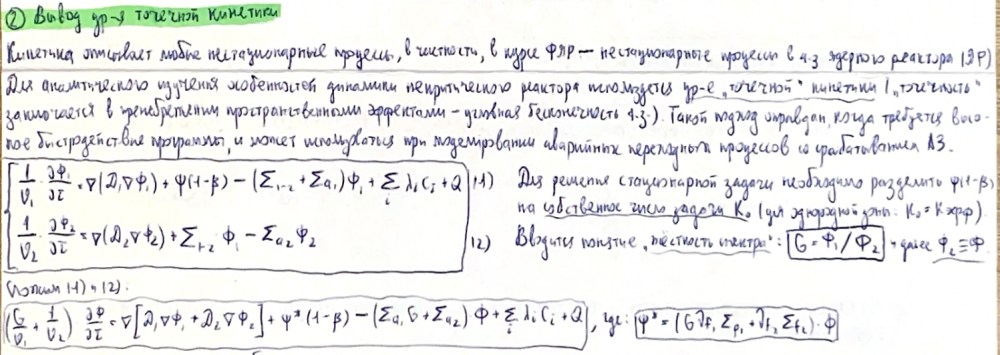 ② Вывод ур-я точечной кинетики
Кинетика описывает любые нестационарные процессы, в частности, в курсе ФЯР — нестационарные процессы в а.з ядерного реактора (ЯР)
Для аналитического изучения особенностей динамики некритического реактора используется ур-е "точечной" кинетики ("точечность"
заключается в пренебрежении пространственными эффектами - условная бесконечность а.з.). Такой подход оправдан, когда требуется высо-
кое быстродействие программы, и может использоваться при моделировании аварийных переходных процессов со срабатыванием АЗ.
1/υ₁ · ∂Φ₁/∂τ = ∇(D₁∇Φ₁) + ψ(1-β) - (Σ₁₋₂ + Σa₁)Φ₁ + Σᵢ λᵢCᵢ + Q (1)
1/υ₂ · ∂Φ₂/∂τ = ∇(D₂∇Φ₂) + Σ₁₋₂ Φ₁ - Σa₂ Φ₂ (2)
Для решения стационарной задачи необходимо разделить ψ(1-β)
на собственное число задачи K₀ (для однородной зоны: K₀ = Kэфф).
Вводится понятие "жесткость спектра": G = Φ₁/Φ₂, далее Φ₂ ≡ Φ.
Сложим (1) и (2):
(G/υ₁ + 1/υ₂) ∂Φ/∂τ = ∇[D₁∇Φ₁ + D₂∇Φ₂] + ψ*(1-β) - (Σa₁G + Σa₂)Φ + Σᵢ λᵢCᵢ + Q, где: ψ* = (Gνf₁Σf₁ + νf₂Σf₂)·Φ